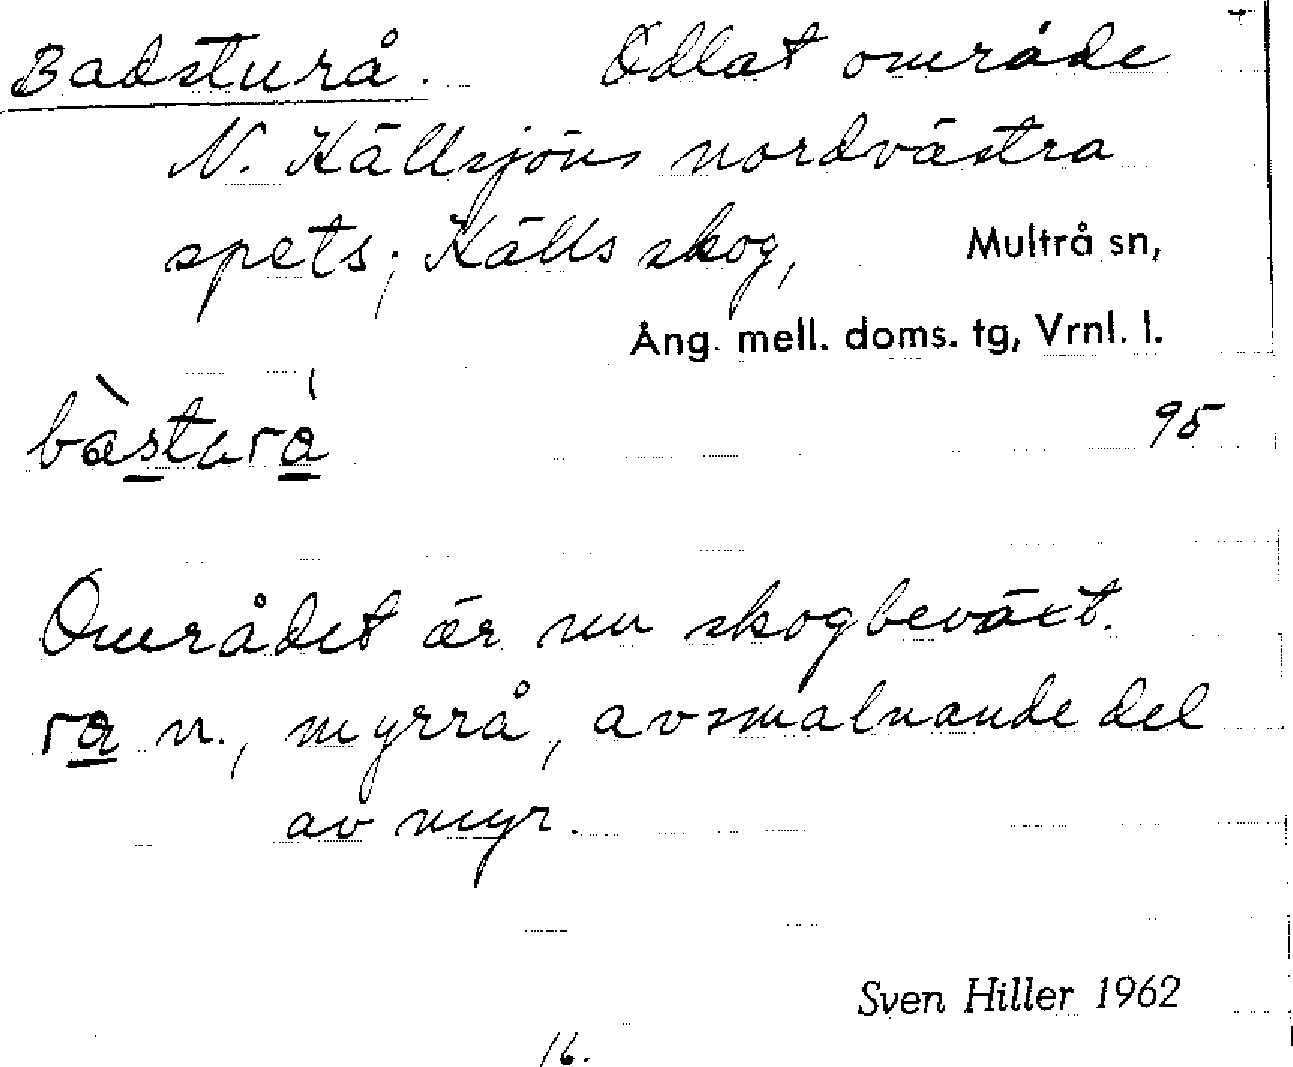 Badsturå. Odlat område
N. Källsjöns nordvästra
spets; Källs skog, Multrå sn,
Ång. mell. doms. tg, Vrnl. l.
95
Området är nu skogbeväxt.
n., myrrå, avsmalnande del
av myr.
Sven Hiller 1962
16.